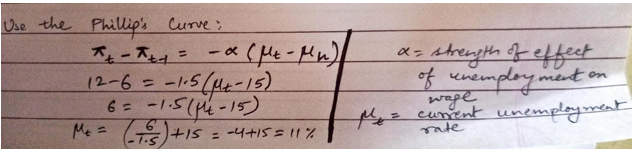 Use the Phillip's Curve:
π_t - π_t-1 = -α (μ_t - μ_n)
12-6 = -1.5(μ_t-15)
6 = -1.5(μ_t-15)
μ_t = (6/-1.5)+15 = -4+15 = 11%
α = strength of effect
of unemployment on
wage
μ_t = current unemployment
rate